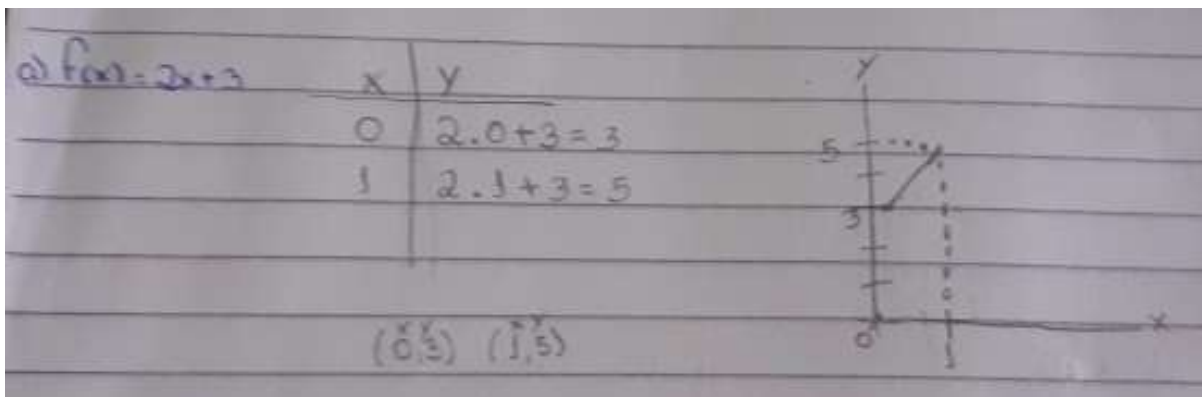 a) f(x) = 2x + 3
x y
0 2.0+3=3
1 2.1+3=5
x y x y
(0,3) (1,5)
y
5
3
0 1 x